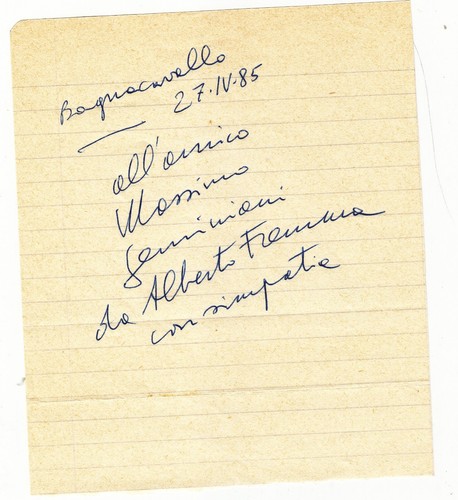 Bagnacavallo
27·IV·85
all'amico
Massimo
Geminiani
da Alberto Fremura
con simpatia